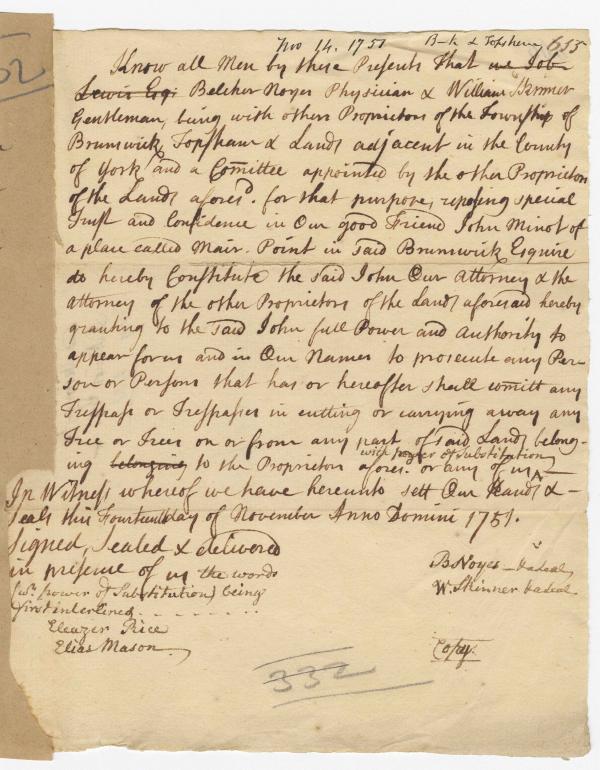 Nov 14. 1751 B-k & Topsham 655
Know all Men by these Presents That we Job
Lewis Esq: Belcher Noyes Physician & William Skinner
Gentleman, being with others Proprietors of the Township of
Brunswick Topsham & Lands adjacent in the County
of York and a Comittee appointed by the other Proprietors
of the Lands afores.d for that purpose, reposing special
Trust and Confidence in Our good Friend John Minot of
a place called Mair-Point in said Brunswick Esquire
do hereby Constitute the said John Our Attorney & the
Attorney of the other Proprietors of the Lands aforesaid hereby
granting to the said John full Power and Authority to
appear for us and in Our Names to prosecute any Per-
son or Persons that has or hereafter shall comitt any
Trespass or Trespasses in cutting or carrying away any
Tree or Trees on or from any part of said Lands belong-
with power of Substitution
ing belonging to the Proprietors afores.d or any of us ^
In Witness whereof we have hereunto sett Our Hands & -
Seals this Fourteenth day of November Anno Domini 1751.
Signed, Sealed & delivered
in presence of us the words
(w.th power of Substitution) being
first interlined
Eleazer Rice
Elias Mason
B Noyes - & a seal
W. Skinner & a seal
Copy
332
52